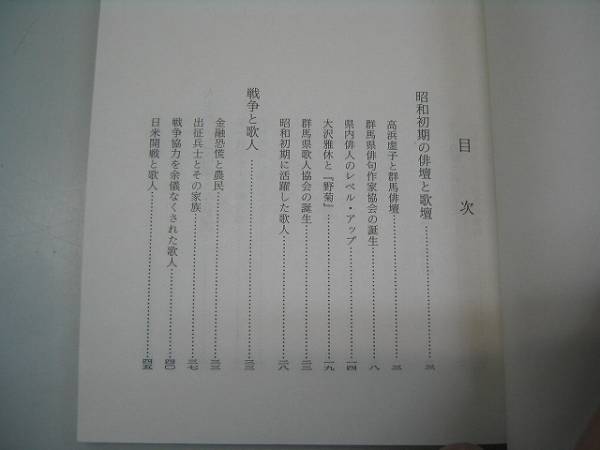 目次
昭和初期の俳壇と歌壇……三
高浜虚子と群馬俳壇……三
群馬県俳句作家協会の誕生……八
県内俳人のレベル・アップ……一四
大沢雅休と『野菊』……一九
群馬県歌人協会の誕生……二三
昭和初期に活躍した歌人……二八
戦争と歌人……三三
金融恐慌と農民……三三
出征兵士とその家族……三七
戦争協力を余儀なくされた歌人……四〇
日米開戦と歌人……四五